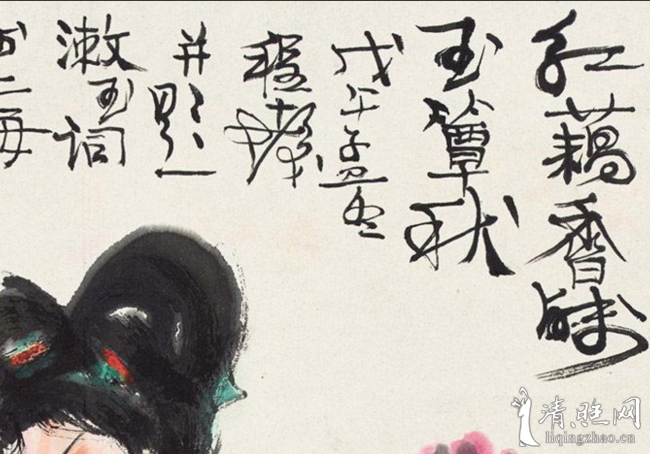 红藕香残
玉簟秋
戊午孟冬
程十髮
并题
漱玉词
上海
liqingzhao.cn